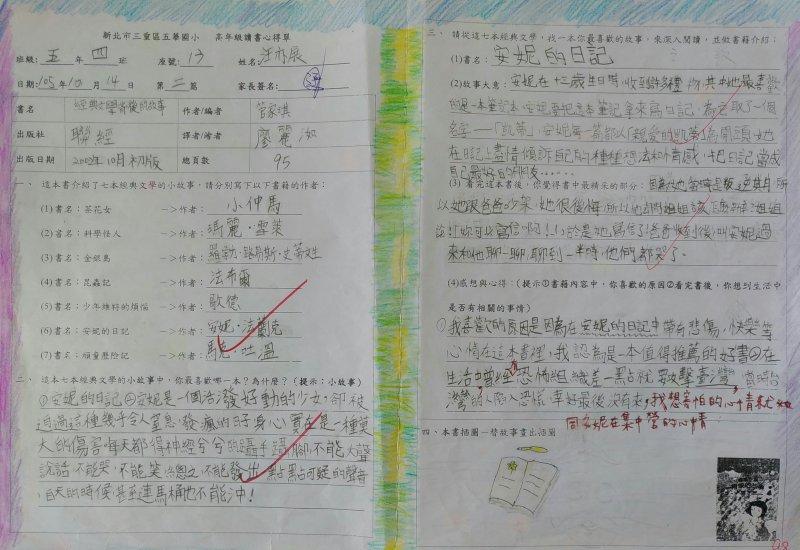 新北市三重區五華國小 高年級讀書心得單
班級:五年四班 座號:13 姓名:
日期:105年10月14日 第二篇 家長簽名:
書名 經典文學背後的故事 作者/編者 管家琪
出版社 聯經 譯者/繪者 廖麗
出版日期 2002年10月初版 總頁數 95
一、這本書介紹了七本經典文學的小故事,請分別寫下以下書籍的作者:
(1)書名:茶花女 —>作者:小仲馬
(2)書名:科學怪人 —>作者:瑪麗·雪萊
(3)書名:金銀島 —>作者:羅勃·路易斯·史蒂文生
(4)書名:昆蟲記 —>作者:法布爾
(5)書名:少年維特的煩惱 —>作者:歌德
(6)書名:安妮的日記 —>作者:安妮·法蘭克
(7)書名:頑童歷險記 —>作者:馬克·吐溫
二、這本七本經典文學的小故事中,你最喜歡哪一本?為什麼?(提示:小故事)
①安妮的日記②安妮是一個活潑好動的少女,卻被
迫過這種幾乎令人窒息、發瘋的日子,身心實在是一種莫
大的傷害,每天都得神經兮兮的躡手躡腳,不能大聲
說話、不能哭、不能笑,總之,不能發出一點點可疑的聲音,
白天的時候甚至連馬桶也不能沖!
三、請從這七本經典文學,找一本你最喜歡的故事,來深入閱讀,並做書籍介紹:
(1)書名:安妮的日記
(2)故事大意:安妮在十三歲生日時,收到許多禮物,其中她最喜歡
的是一本筆記本,安妮要把這本筆記拿來寫日記,為它取了一個
名字——「凱蒂」,安妮每一篇都以「親愛的凱蒂」為開頭,她
在日記上盡情傾訴自己的種種想法和情感,把日記當成
自己最好的朋友......
(3)看完這本後,你覺得書中最精采的部分:因為她
以她跟爸爸吵架,她很後悔,所以她問姐姐該怎麼辦,姐姐
說:「妳可以寫信啊!」於是她寫信了,爸爸收到後,叫安妮過
來和他聊一聊,聊到一半時,他們都哭了。
(4)感想與心得:(提示①書籍內容中,你喜歡的原因②看完書後,你想到生活中
是否有相關的事情)
①我喜歡的原因是因為在安妮的日記中帶有悲傷、快樂等
心情在這本書裡,我認為是一本值得推薦的好書②在
生活中曾經恐怖組織差一點就攻擊臺灣,當時台
灣的人陷入恐慌,幸好最後沒有來,我想害怕的心情
同安妮在集中營的心情
四、本書插圖一替故事畫出插圖